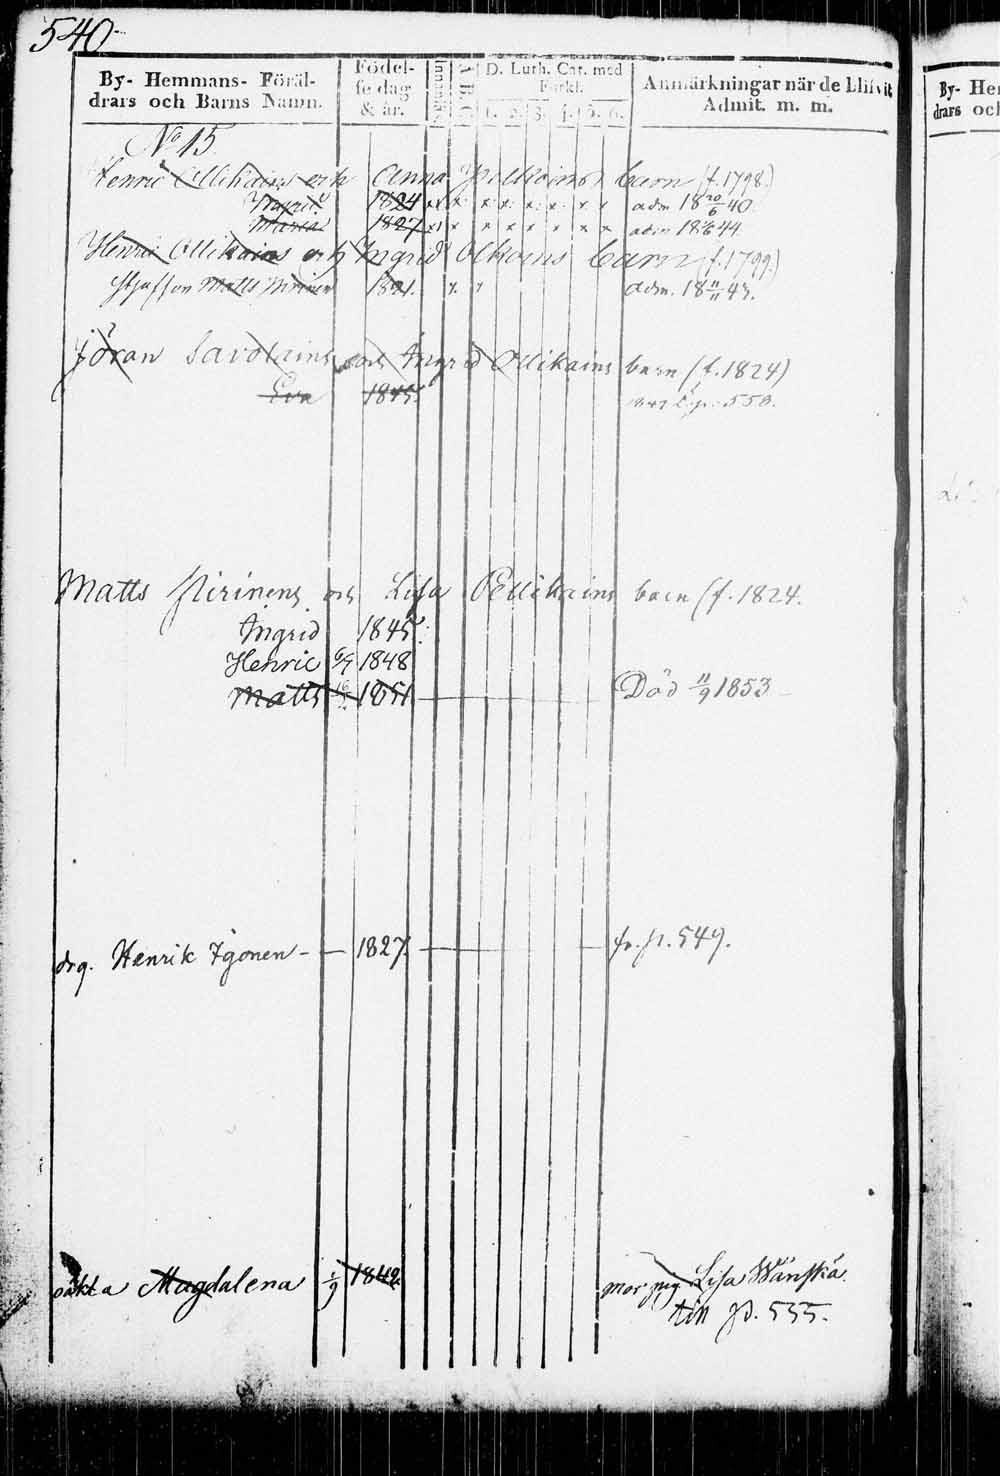 540
By- Hemmans- Föräl-
drars och Barns Namn.
Födel-
se dag
& år.
Innanläsn.
A. B. C.
D. Luth. Cat. med
Förkl.
1. 2. 3. 4. 5. 6.
Anmärkningar när de blifvit
Admit. m. m.
No 15
Henric Ollikains och Anna barn (f. 1798.)
Ingrid 1824 x x x x x x x x adm 18 20/6 40.
Maria 1827 x x x x x x x x adm 44
Henric Ollikains och Ingrid barn (f. 1799.)
Matts 1821. x adm. 18 11/11 43.
Jöran Savolains och Ingrid Ollikains barn (f. 1824)
Eva 1845. p. 550.
Matts Piirinens och Lisa Pellikains barn (f. 1824.
Ingrid 1845.
Henric 6/9 1848
Matts 1851 Död 11/9 1853
drg. Henrik Igonen 1827. fr. p. 549.
oäkta Magdalena 1/9 1842. mor pig Lisa Wänskä.
till p. 535.
By- He
drars och